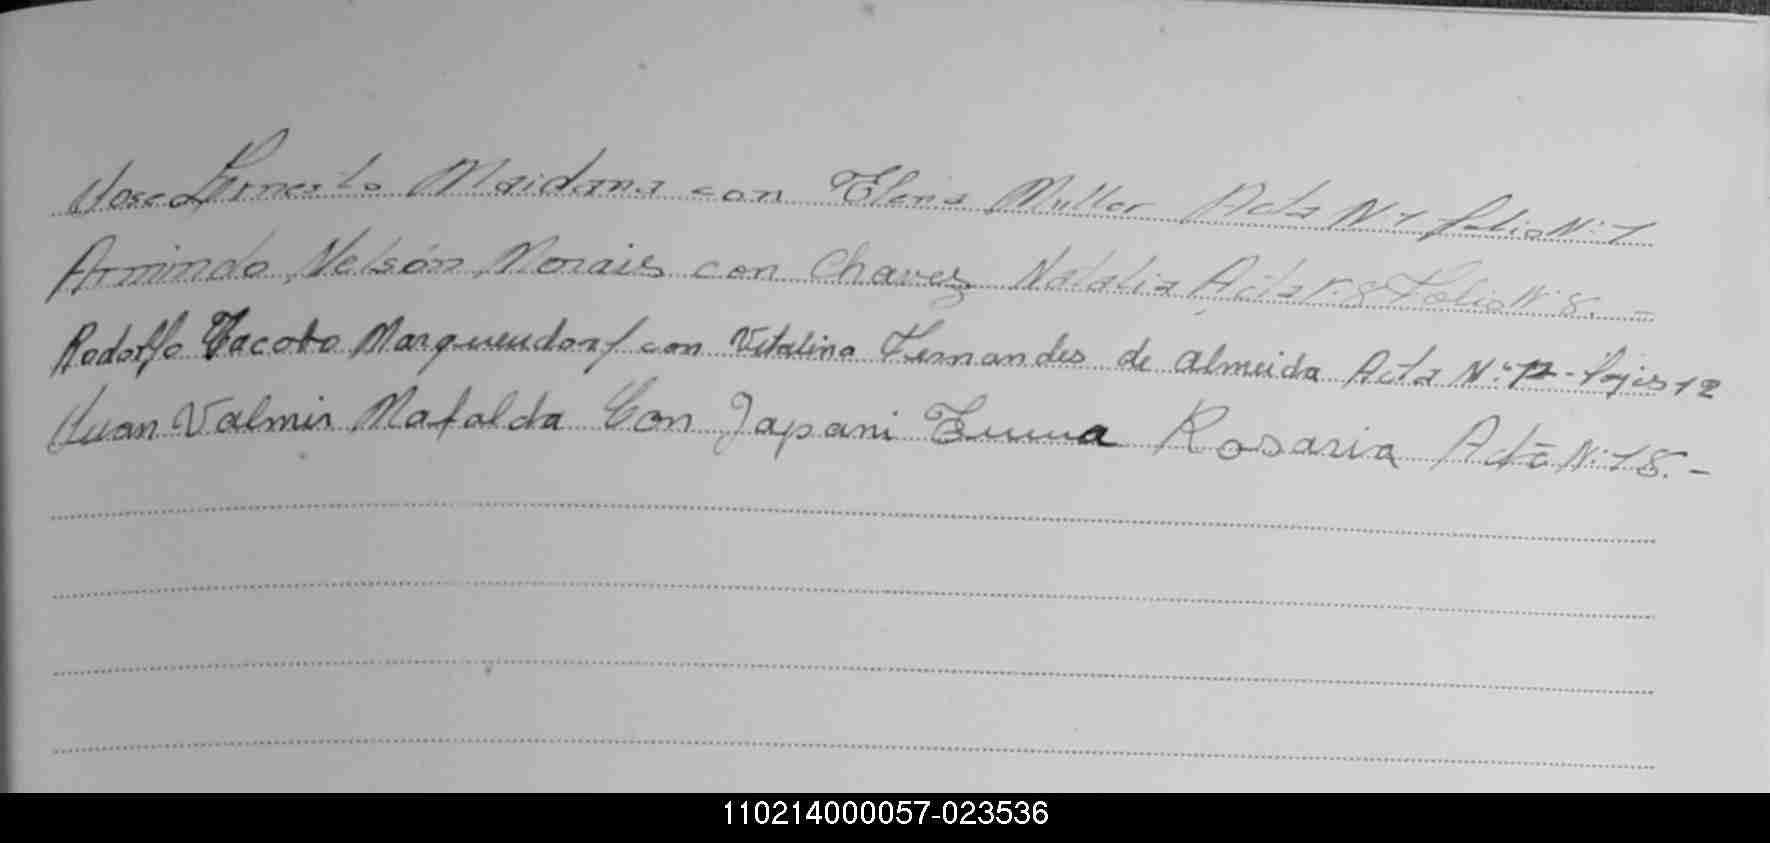 Jose Ernesto Maidana con Elena Muller Acta Nº 1 folio Nº 1
Armindo Nelsón Morais con Chavez Natalia Acta Nº 8 Folio Nº 8.-
Rodolfo Jacobo Marquendorf con Vitalina Fernandes de almeida Acta Nº 12- fojas 12
Juan Valmir Mafalda Con Japani Emma Rosaria Acta Nº 18.-
110214000057-023536